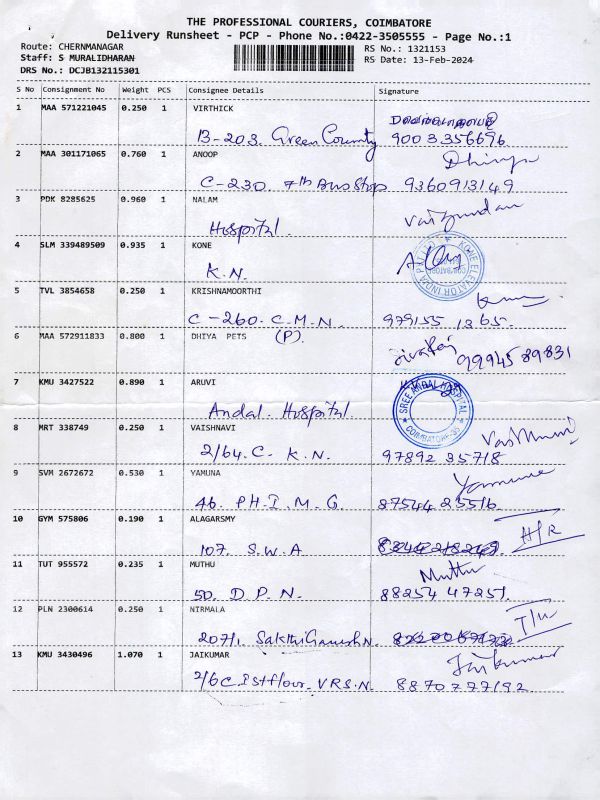 THE PROFESSIONAL COURIERS, COIMBATORE
Delivery Runsheet - PCP - Phone No.:0422-3505555 - Page No.:1
Route: CHERNMANAGAR RS No.: 1321153
Staff: S MURALIDHARAN RS Date: 13-Feb-2024
DRS No.: DCJB132115301
S No Consignment No Weight PCS Consignee Details Signature
1 MAA 571221045 0.250 1 VIRTHICK
B-203. Green County 9003356696
2 MAA 301171065 0.760 1 ANOOP
C-230. 7th Bus Stop 9360913149
3 PDK 8285625 0.960 1 NALAM
Hospital.
4 SLM 339489509 0.935 1 KONE
K.N. KONE ELEVATOR INDIA
5 TVL 3854658 0.250 1 KRISHNAMOORTHI
C-260. C.M.N. 979155 1365.
6 MAA 572911833 0.800 1 DHIYA PETS (P).
99945 89831
7 KMU 3427522 0.890 1 ARUVI
Andal. Hospital. SREE ANDAL HOSPITAL COIMBATORE-35
8 MRT 338749 0.250 1 VAISHNAVI
2/64. C. K. N. 97892 35718
9 SVM 2672672 0.530 1 YAMUNA Yamuna
46. P.H.I.M.G. 87544 23516
10 GYM 575806 0.190 1 ALAGARSMY H/R
107. S.W.A
11 TUT 955572 0.235 1 MUTHU Muthu
50. D.P.N. 88254 47251.
12 PLN 2300614 0.250 1 NIRMALA
207/1. Sakthi Ganesh N.
13 KMU 3430496 1.070 1 JAIKUMAR Jaikumar
2/6C. Ist flour. V.R.S.N. 8870777192